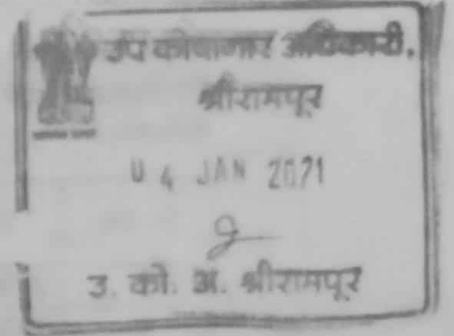 उप कोषागार अधिकारी,
श्रीरामपूर
0 4 JAN 2021
उ. को. अ. श्रीरामपूर